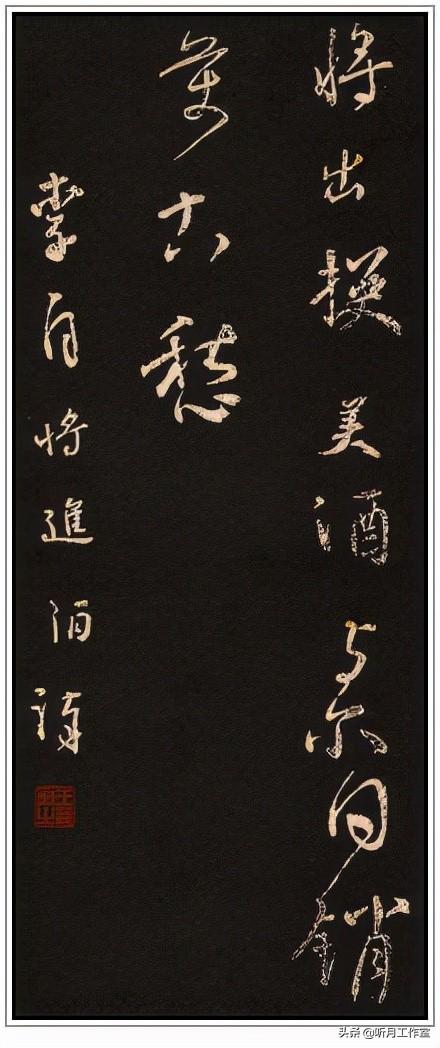 將出換美酒与尔同銷
萬古愁
自將進酒詩
头条 @听月工作室